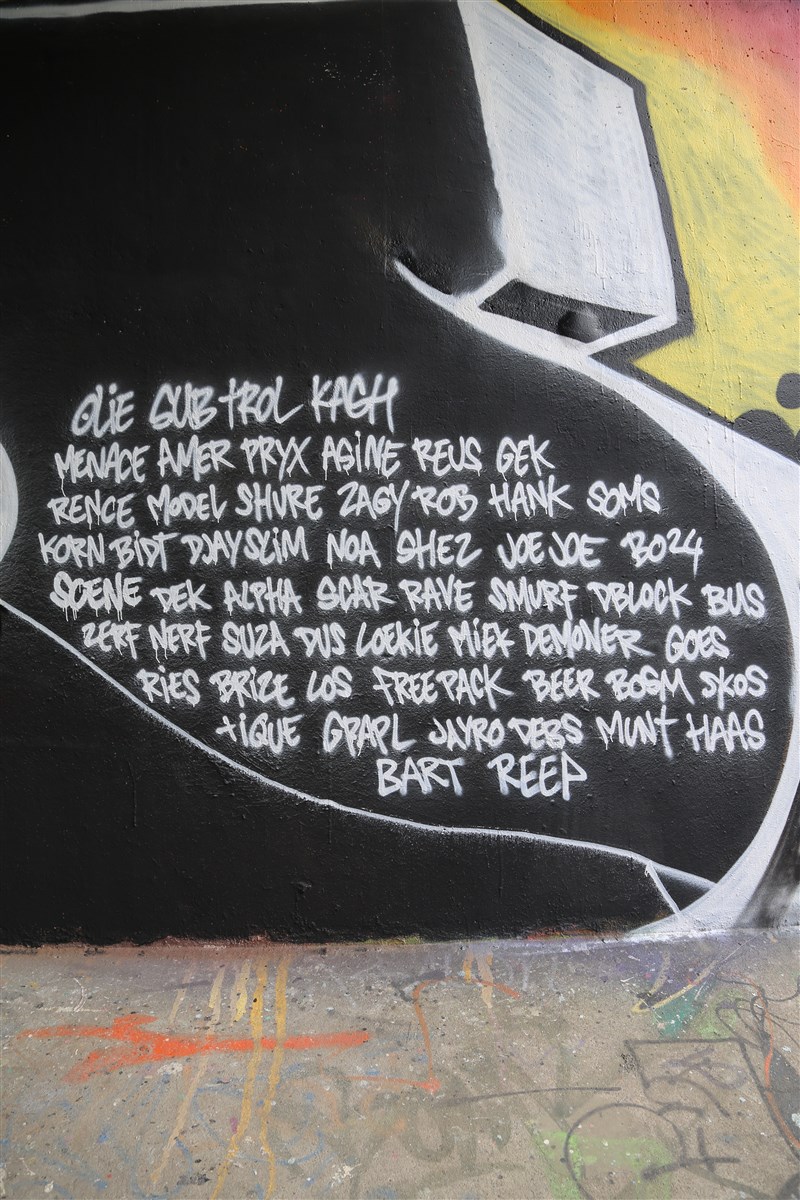 OLIE SUBTROL KAGH
MENACE AMER PRYX ASINE REUS GEK
RENCE MODEL SHURE ZAGY ROB HANK SOMS
KORN BIDT DJAYSLIM NOA SHEZ JOEJOE BO24
SCENE DEK ALPHA SCAR RAVE SMURF DBLOCK BUS
ZERF NERF SUZA DUS LOEKIE MIEK DEMONER GOES
RIES BRIZE LOS FREEPACK BEER BOSM SKOS
TIQUE GRAPL JAYRO DEBS MUNT HAAS
BART REEP